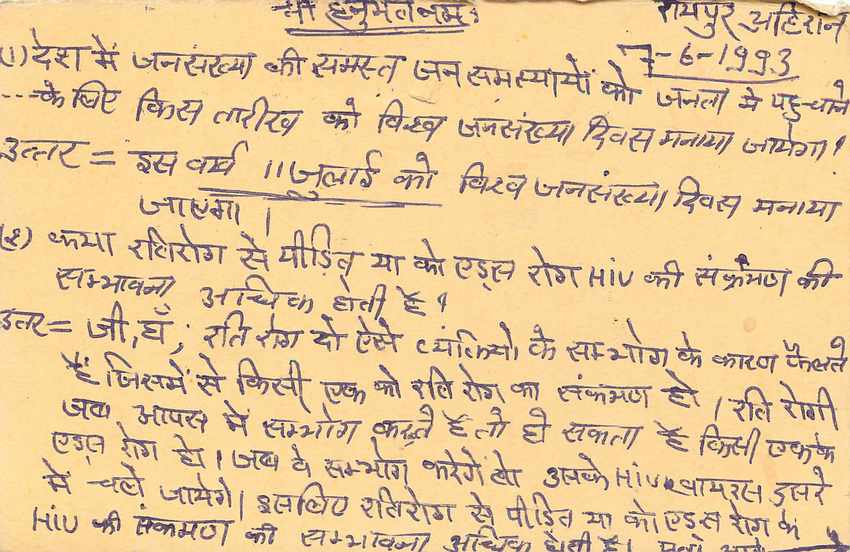 श्री हनुमते नमः
रायपुर अहिरान
7-6-1993
(1) देश में जनसंख्या की समस्त जन समस्यायों को जनता में पहुचाने
---के लिए किस तारीख को विश्व जनसंख्या दिवस मनाया जायेगा?
उत्तर = इस वर्ष 11 जुलाई को विश्व जनसंख्या दिवस मनाया
जाएगा।
(2) क्या रतिरोग से पीड़ित या को एड्स रोग HIV की संक्रमण की
सम्भावना अधिक होती है?
उत्तर = जी, हाँ; रति रोग दो ऐसे व्यक्तियो के सम्भोग के कारण फैलते
हैं जिसमें से किसी एक को रति रोग का संक्रमण हो। रति रोगी
जब आपस में सम्भोग करते हैं तो हो सकता है किसी एक के
एड्स रोग हो। जब वे सम्भोग करेगें तो उसके HIV वायरस दुसरे
में चले जायेगे। इसलिए रतिरोग से पीड़ित या को एड्स रोग के
HIV की संक्रमण की सम्भावना अधिक होती है।